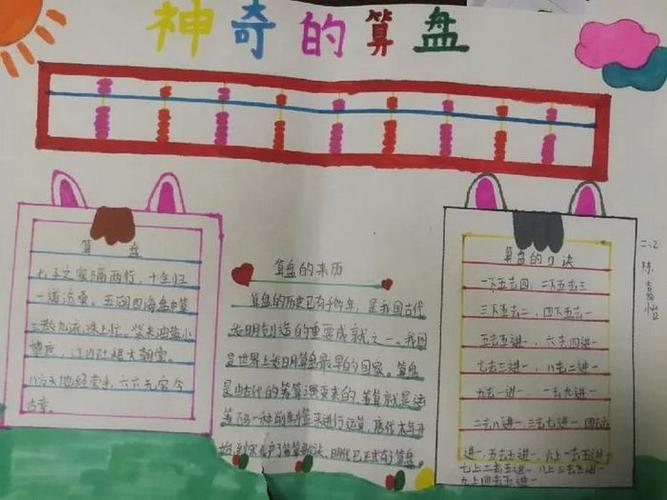 神奇的算盘
算 盘
七子之家隔两行,十全归
一道沧桑。五湖四海盘中算
三教九流珠上行。柴米油盐小
黎庶,江山社稷大朝堂。
古章。
算盘的来历
算盘的历史已有千何年,是我国古代
发明创造的重要成就之一。我国
是世界上发明算盘最早的国家。算盘
是由古代的筹算演变来的,筹算就是运
用了一种竹制筹来进行运算,唐代末年开
算盘的口诀
一下五去四,二下五去三
三下五去二,四下五去一
五去五进一,六去四进一
七去三进一,八去二进一
九去一进一,一去九进一
二去八进一,三去七进一,四去六
进一,五去五进一,六上一去五进一
七上二去五进一,八上三去五进一
九上四去五进一
二、2
陈
怡